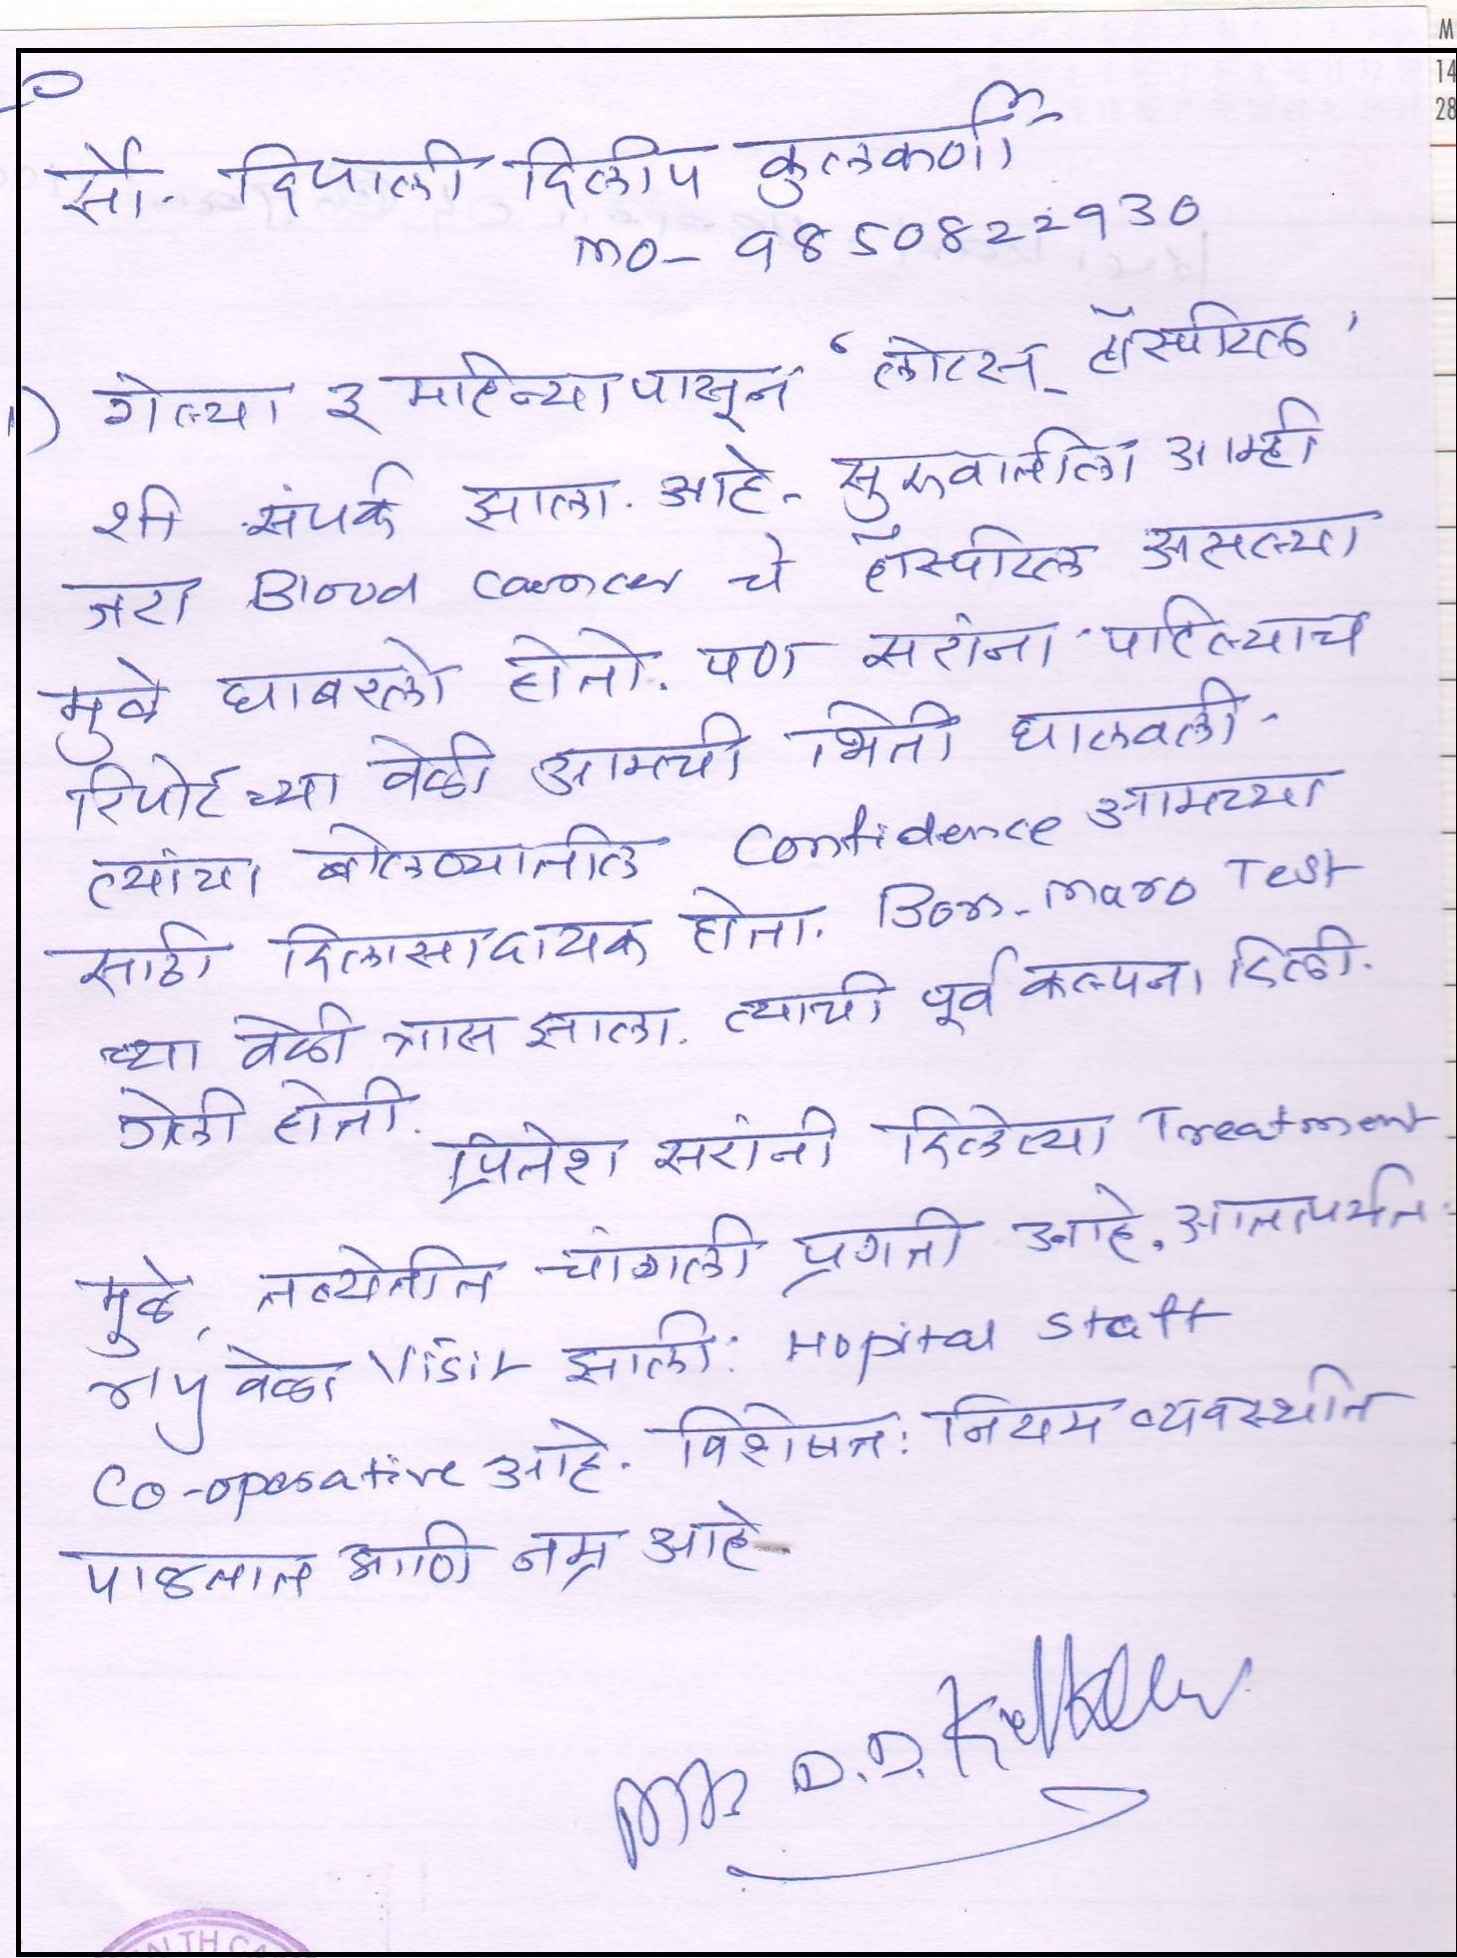 M
14
28
सौ. दिपाली दिलीप कुलकर्णी
mo- 9850822930
1) गेल्या ३ महिन्यापासून 'लोटस् हॉस्पीटल'
शी संपर्क झाला. आहे. सुरुवातीला आम्ही
जरा Blood cancer चे हॉस्पीटल असल्या
मुळे घाबरलो होतो. पण सरांना पहिल्याच
रिपोर्टच्या वेळी आमची भिती घालवली.
त्यांचा बोलण्यातील Confidence आमच्या
साठी दिलासादायक होता. Bon-maro Test
च्या वेळी त्रास झाला. त्याची पूर्व कल्पना दिली.
गेली होती.
प्रितेश सरांनी दिलेल्या Treatment
मुळे, तब्येतीत चांगली प्रगती आहे. आतापर्यंत
वेळा Visit झाली. Hopital staff
Co-operative आहे. विशेषत: नियम व्यवस्थीत
पाळतात आणि नम्र आहे.
D.D.
ALTH CA